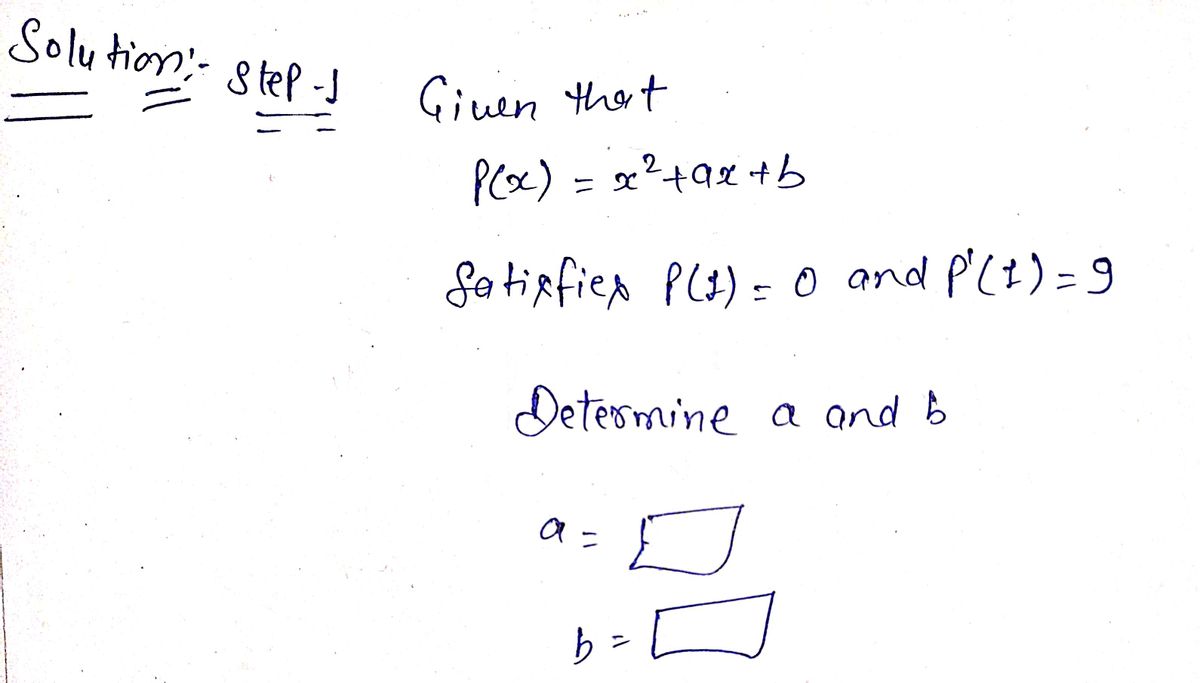 Solution:- Step-1 Given that
P(x) = x²+ax+b
Satisfies P(1) = 0 and P'(1) = 9
Determine a and b
a =
b =